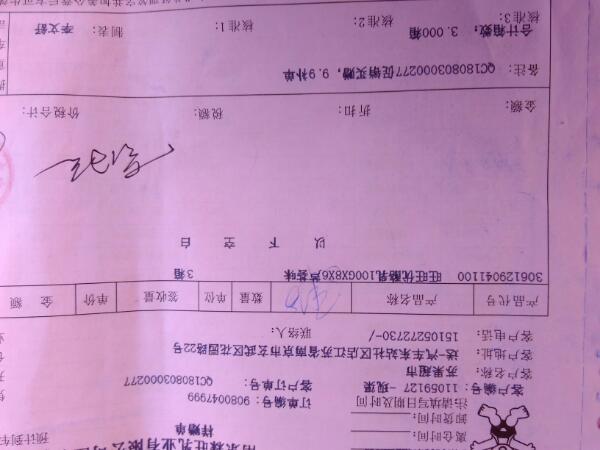 南京森旺乳业有限公司
样赠单
预计到车
离仓时间:
卸货时间:
注:请填写日期及时间
订单编号: 9080047999
客户编号: 11059127 -现渠
客户订单号: QC180803000277
客户名称: 苏果超市
客户地址: 送-汽车东站社区店江苏省南京市玄武区花园路22号
客户电话: 15105272730-/
联络人:
产品代号 产品名称 数量 单位 签收量 单价 金额
3061129041100 旺旺优酪乳100GX8X6芦荟味 3箱
以下空白
金额: 折扣: 税额: 价税合计:
备注: QC180803000277促销买赠, 9.9补单
合计箱数: 3.000箱
核准3: 核准2: 核准1: 制表: 李文舒